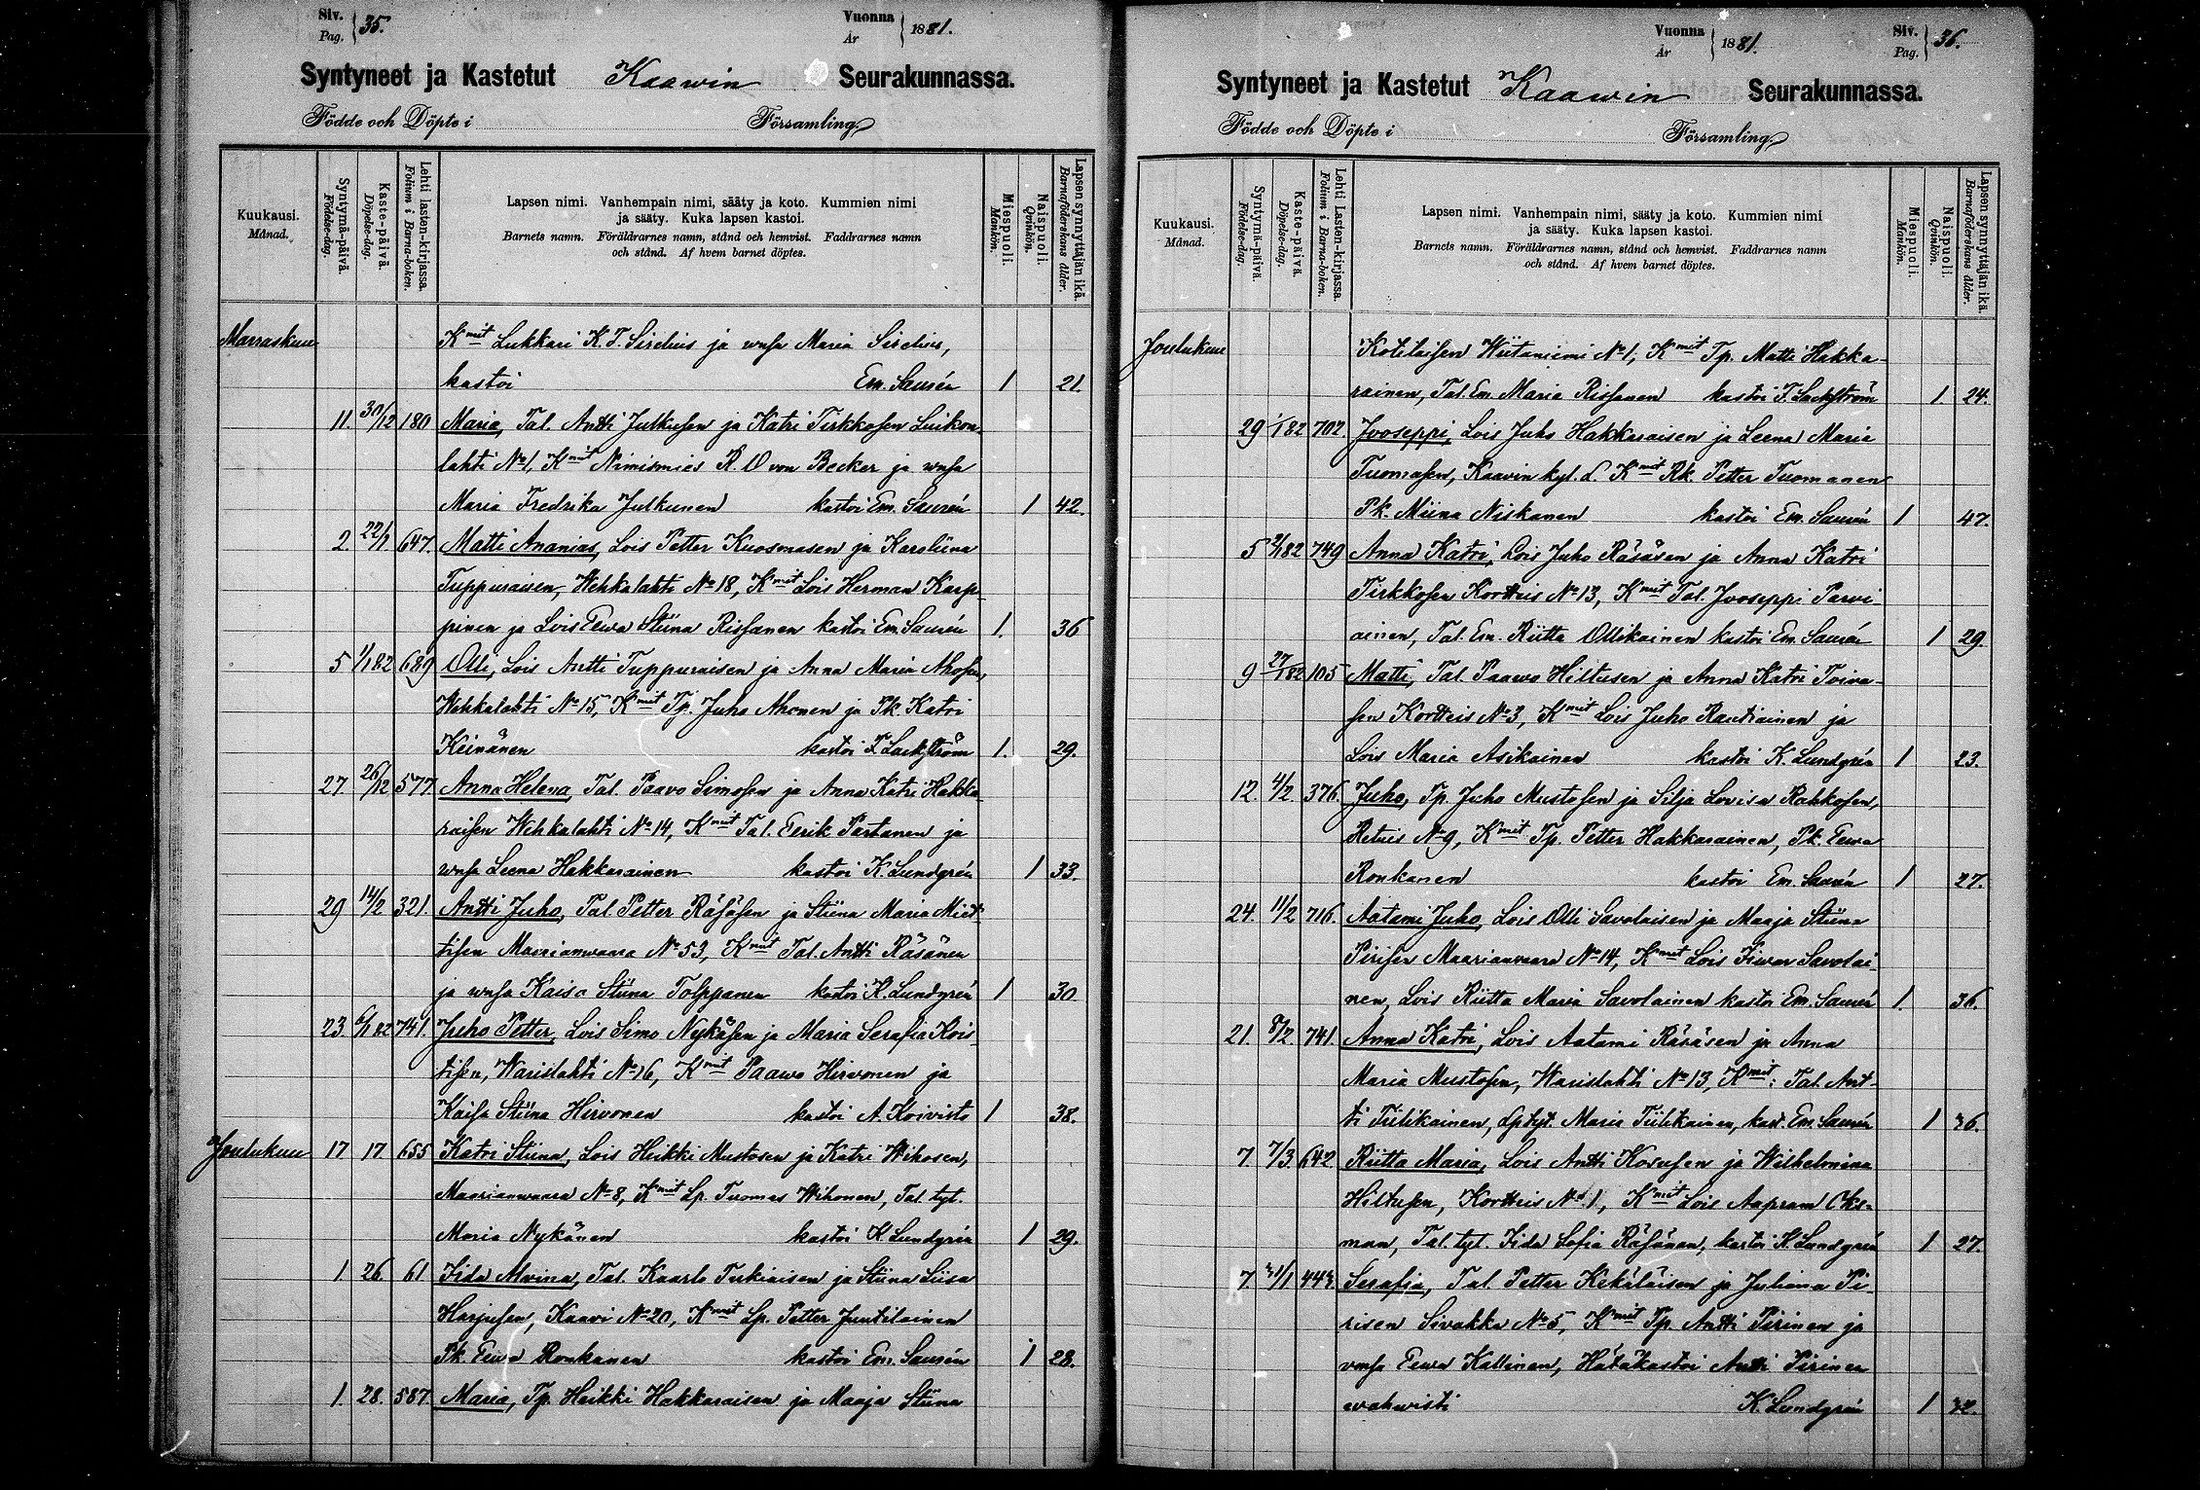 Siv. Pag. 35.
Vuonna År 1881.
Syntyneet ja Kastetut Kaawin Seurakunnassa.
Födde och Döpte i Församling
Kuukausi. Månad.
Syntymä-päivä. Födelse-dag.
Kaste-päivä. Döpelse-dag.
Lehti lasten-kirjassa. Folium i Barna-boken.
Lapsen nimi. Vanhempain nimi, sääty ja koto. Kummien nimi
ja sääty. Kuka lapsen kastoi.
Barnets namn. Föräldrarnes namn, stånd och hemvist. Faddrarnes namn
och stånd. Af hvem barnet döptes.
Miespuoli. Mankön.
Naispuoli. Qvinkön.
Lapsen synnyttäjän ikä. Barnaföderskans ålder.
Marraskuu Kmit Lukkari K. T. Sirelius ja waimo Maria Sirelius,
kastoi Em. Saurén 1 21.
11. 30/12 180 Maria, Tal. Antti Julkusen ja Katri Tirkkosen Luikon-
lahti No 1, Kmit Nimismies R. O von Becker ja waimo
Maria Fredrika Julkunen kastoi Em. Saurén 1 42.
2. 22/1 647. Matti Ananias, Lois Petter Kuosmasen ja Karoliina
Tuppuraisen, Wehkalahti No 18, Kmit Lois Herman Karp-
pinen ja Lois Eewa Stiina Rissanen kastoi Em. Saurén 1. 36
5 1/1 82 689 Olli, Lois Antti Tuppuraisen ja Anna Maria Ahosen,
Wehkalahti No 15, Kmit Tp. Juho Ahonen ja Pk. Katri
Keinänen kastoi F. Lackström 1. 29.
27 26/12 577 Anna Helena, Tal. Paavo Simosen ja Anna Katri Hakka-
raisen Wehkalahti No 14, Kmit Tal. Eerik Partanen ja
Leena Hakkarainen kastoi K. Lundgrén 1 33.
29 14/2 321. Antti Juho, Tal. Petter Räsäsen ja Stiina Maria Miet-
tisen Maarianwaara No 53, Kmit Tal. Antti Räsänen
ja Kaisa Stiina Tolppanen kastoi K. Lundgrén 1 30
23. 6/1 82 741. Juho Petter, Lois Simo Nykäsen ja Maria Serafia Kois-
tisen, Warislahti No 16, Kmit Paawo Hirvonen ja
Kaisa Stiina Hirvonen kastoi A. Koivisto 1 38.
Joulukuu 17 17 655 Katri Stiina, Lois Heikki Mustosen ja Katri Wihosen,
Maarianwaara No 8, Kmit Lp. Tuomas Wihonen, Tal. tyt.
Maria Nykänen kastoi K Lundgrén 1 29.
1 26 61 Iida Alvina, Tal. Kaarlo Turkiaisen ja Stiina Liisa
Harjusen, Kaavi No 20, Kmit Lp. Petter Juutilainen
Pk. Eewa Ronkanen kastoi Em. Saurén 1 28.
1. 28. 587. Maria, Tp. Heikki Hakkaraisen ja Maaja Stiina
Vuonna År 1881.
Siv. Pag. 36.
Syntyneet ja Kastetut Kaawin Seurakunnassa.
Födde och Döpte i Församling
Kuukausi. Månad.
Syntymä-päivä. Födelse-dag.
Kaste-päivä. Döpelse-dag.
Lehti Lasten-kirjassa. Folium i Barna-boken.
Lapsen nimi. Vanhempain nimi, sääty ja koto. Kummien nimi
ja sääty. Kuka lapsen kastoi.
Barnets namn. Föräldrarnes namn, stånd och hemvist. Faddrarnes namn
och stånd. Af hvem barnet döptes.
Miespuoli. Mankön.
Naispuoli. Qvinkön.
Lapsen synnyttäjän ikä. Barnaföderskans ålder.
Joulukuu Kotilaisen Wiitaniemi No 1, Kmit Tp. Matti Hakka-
rainen, Tal. Em. Maria Rissanen kastoi F. Lackström 1. 24.
29 1/1 82 702 Jooseppi, Lois Juho Hakkaraisen ja Leena Maria
Tuomasen, Kaavin kyl. L. Kmit Rk. Petter Tuomanen
Pk. Miina Niskanen kastoi Em. Saurén 1 47.
5 2/1 82 749 Anna Katri, Lois Juho Räsäsen ja Anna Katri
Tirkkosen Kortteis No 13, Kmit Tal. Jooseppi Parvi-
ainen, Tal. Em. Riitta Ollikainen kastoi Em. Saurén 1 29.
9 27/1 82 105 Matti, Tal. Paawo Hiltusen ja Anna Katri Toiva-
sen Kortteis No 3, Kmit Lois Juho Rautiainen ja
Lois Maria Asikainen kastoi K. Lundgrén 1 23.
12. 4/2. 376. Juho, Tp. Juho Mustosen ja Silja Lovisa Rahkosen,
Retuis No 9, Kmit Tp. Petter Hakkarainen, Pk. Eewa
Ronkanen kastoi Em. Saurén 1 27.
24. 11/2 716. Aatami Juho, Lois Olli Savolaisen ja Maaja Stiina
Piirisen Maarianvaara No 14, Kmit Lois Iivar Savolai-
nen, Lois Riitta Maria Savolainen kastoi Em. Saurén 1. 36.
21. 8/2. 741. Anna Katri, Lois Aatami Räsäsen ja Anna
Maria Mustosen, Warislahti No 13, Kmit: Tal. Ant-
ti Tiilikainen, Lp tyt. Maria Tiilikainen, kast. Em. Saurén 1 36.
7. 7/3 642 Riitta Maria, Lois Antti Kosusen ja Wilhelmina
Hiltusen, Kortteis No 1, Kmit Lois Aapram Oks-
man, Tal. tyt. Iida Sofia Räsänen, kastoi K. Lundgrén 1 27.
7. 31/1 443. Serafia, Tal. Petter Kekäläisen ja Juliana Pi-
risen Sivakka No 5, Kmit Tp. Antti Pirinen ja
Eewa Kallinen, Hätäkastoi Antti Pirinen
wahwisti K. Lundgrén 1 32.